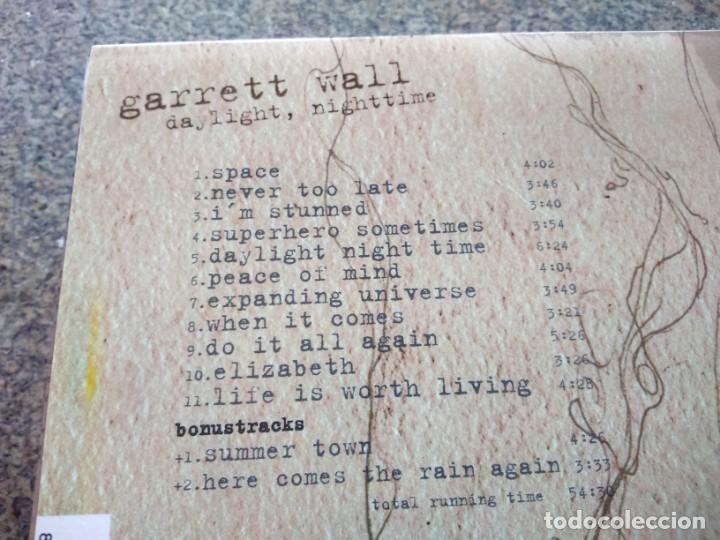 garrett wall
daylight, nighttime
1.space 4:02
2.never too late 3:46
3.i´m stunned 3:40
4.superhero sometimes 3:54
5.daylight night time 6:24
6.peace of mind 4:04
7.expanding universe 3:49
8.when it comes 3:21
9.do it all again 5:26
10.elizabeth 3:26
11.life is worth living 4:28
bonustracks
+1.summer town 4:26
+2.here comes the rain again 3:33
total running time 54:30
8
todocoleccion
todocoleccion.net